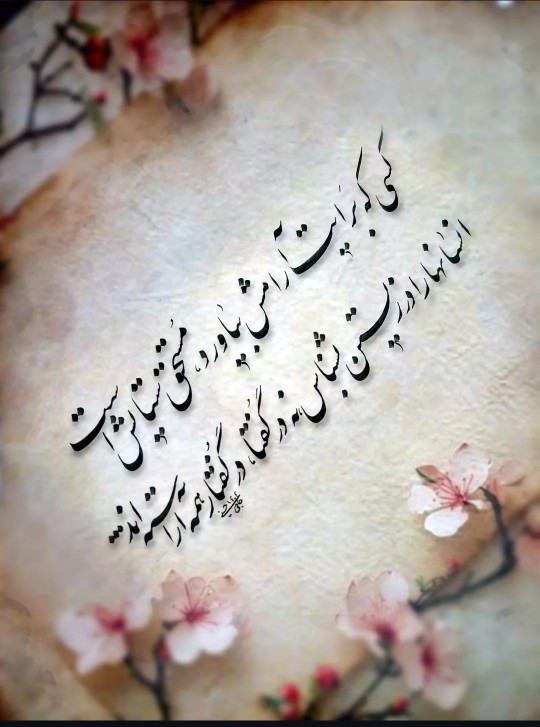 کسی که برایت آرامش بیاورد، مستحق ستایش است
انسانها را در زیستن بشناس، نه در گفتار، در گفتار همه آراسته اند...